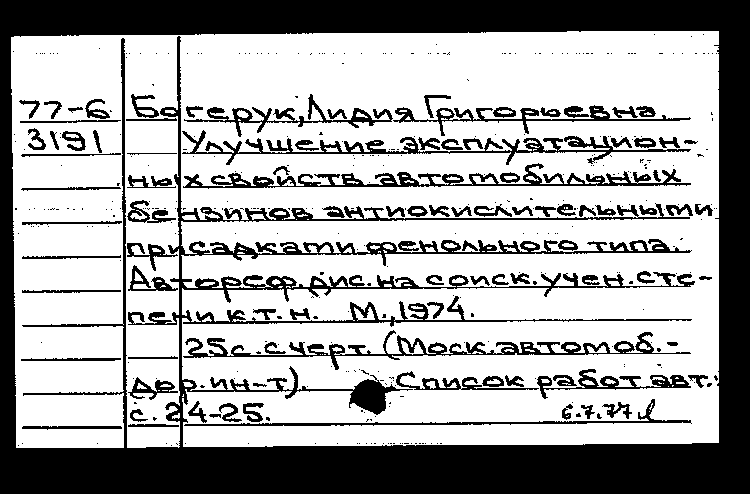 77-6 Богерук, Лидия Григорьевна.
3191 Улучшение эксплуатацион-
ных свойств автомобильных
бензинов антиокислительными
присадками фенольного типа.
Автореф. дис. на соиск. учен. сте-
пени к.т.н. М., 1974.
25с. с черт. (Моск. автомоб.-
дор. ин-т). Список работ авт.:
с. 24-25. 6.7.77